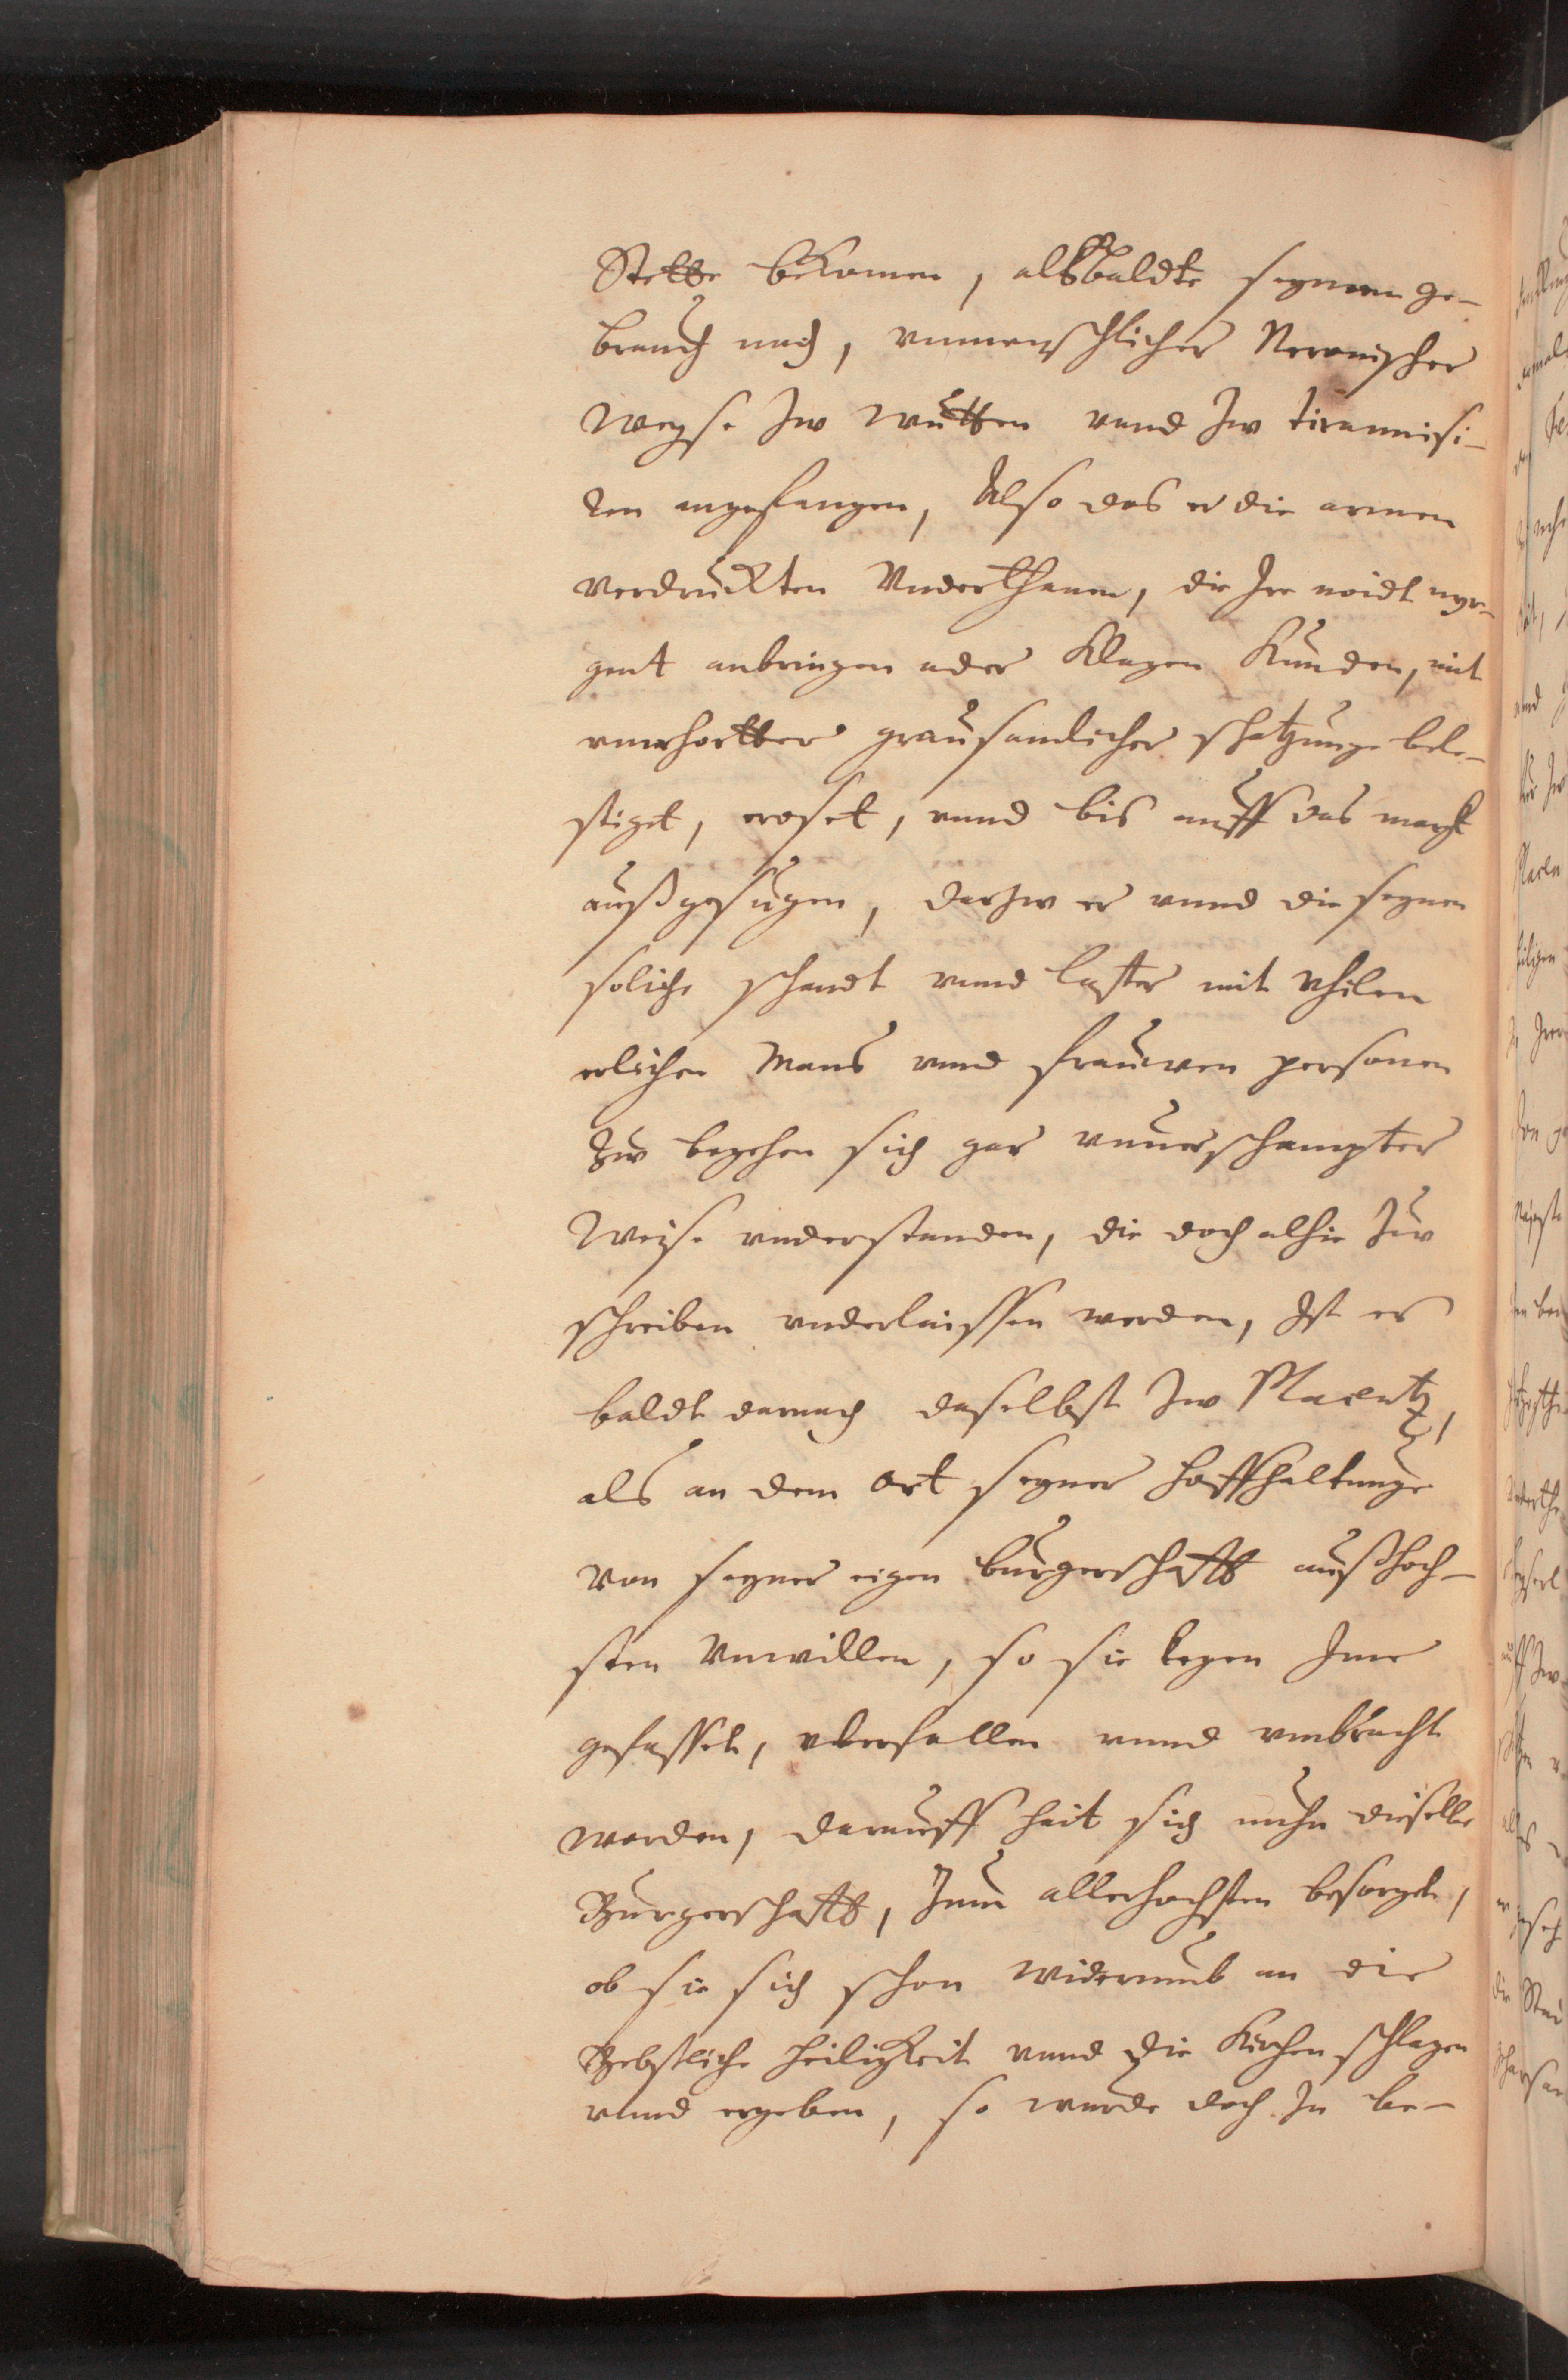 Stette bekomen, alsbaldte seynem ge-
brauch nach, vnmenschlicher Neronischer
Weyse Zw wutten vnnd Zw tirannisi-
ren angefangen, Also das er die armen
verdruckten Vnderthanen, die Ire noidt nyr-
gent anbringen ader klagen kunden, mit
vnerhortter grausamlicher schatzunge bele-
stiget, eroset, vnnd bis auff das marck
außgesugen, darzw er vnnd die seynen
soliche schandt vnnd laster mit vhilen
erlichen Mans vnnd frauwen personen
Zw begehen sich gar vnuerschampter
Weise vnderstanden, die doch alhie Zw
schreiben vnderlaissen werden, Ist er
baldt darnach daselbst Zw Placentz,
als an dem ort seyner hoffhaltunge
von seyner eigen burgerschafft auß hoch-
sten Vnwillen, so sie kegen Ime
gefasset, vberfallen vnnd vmbracht
worden, darauff hait sich nuhn dieselbe
Burgerschafft, Zum allerhochsten besorget,
ob sie sich schon widerumb an die
Bebstliche heiligkeit vnnd die Kirchen schlagen
vnnd ergeben, so wurde doch In be-